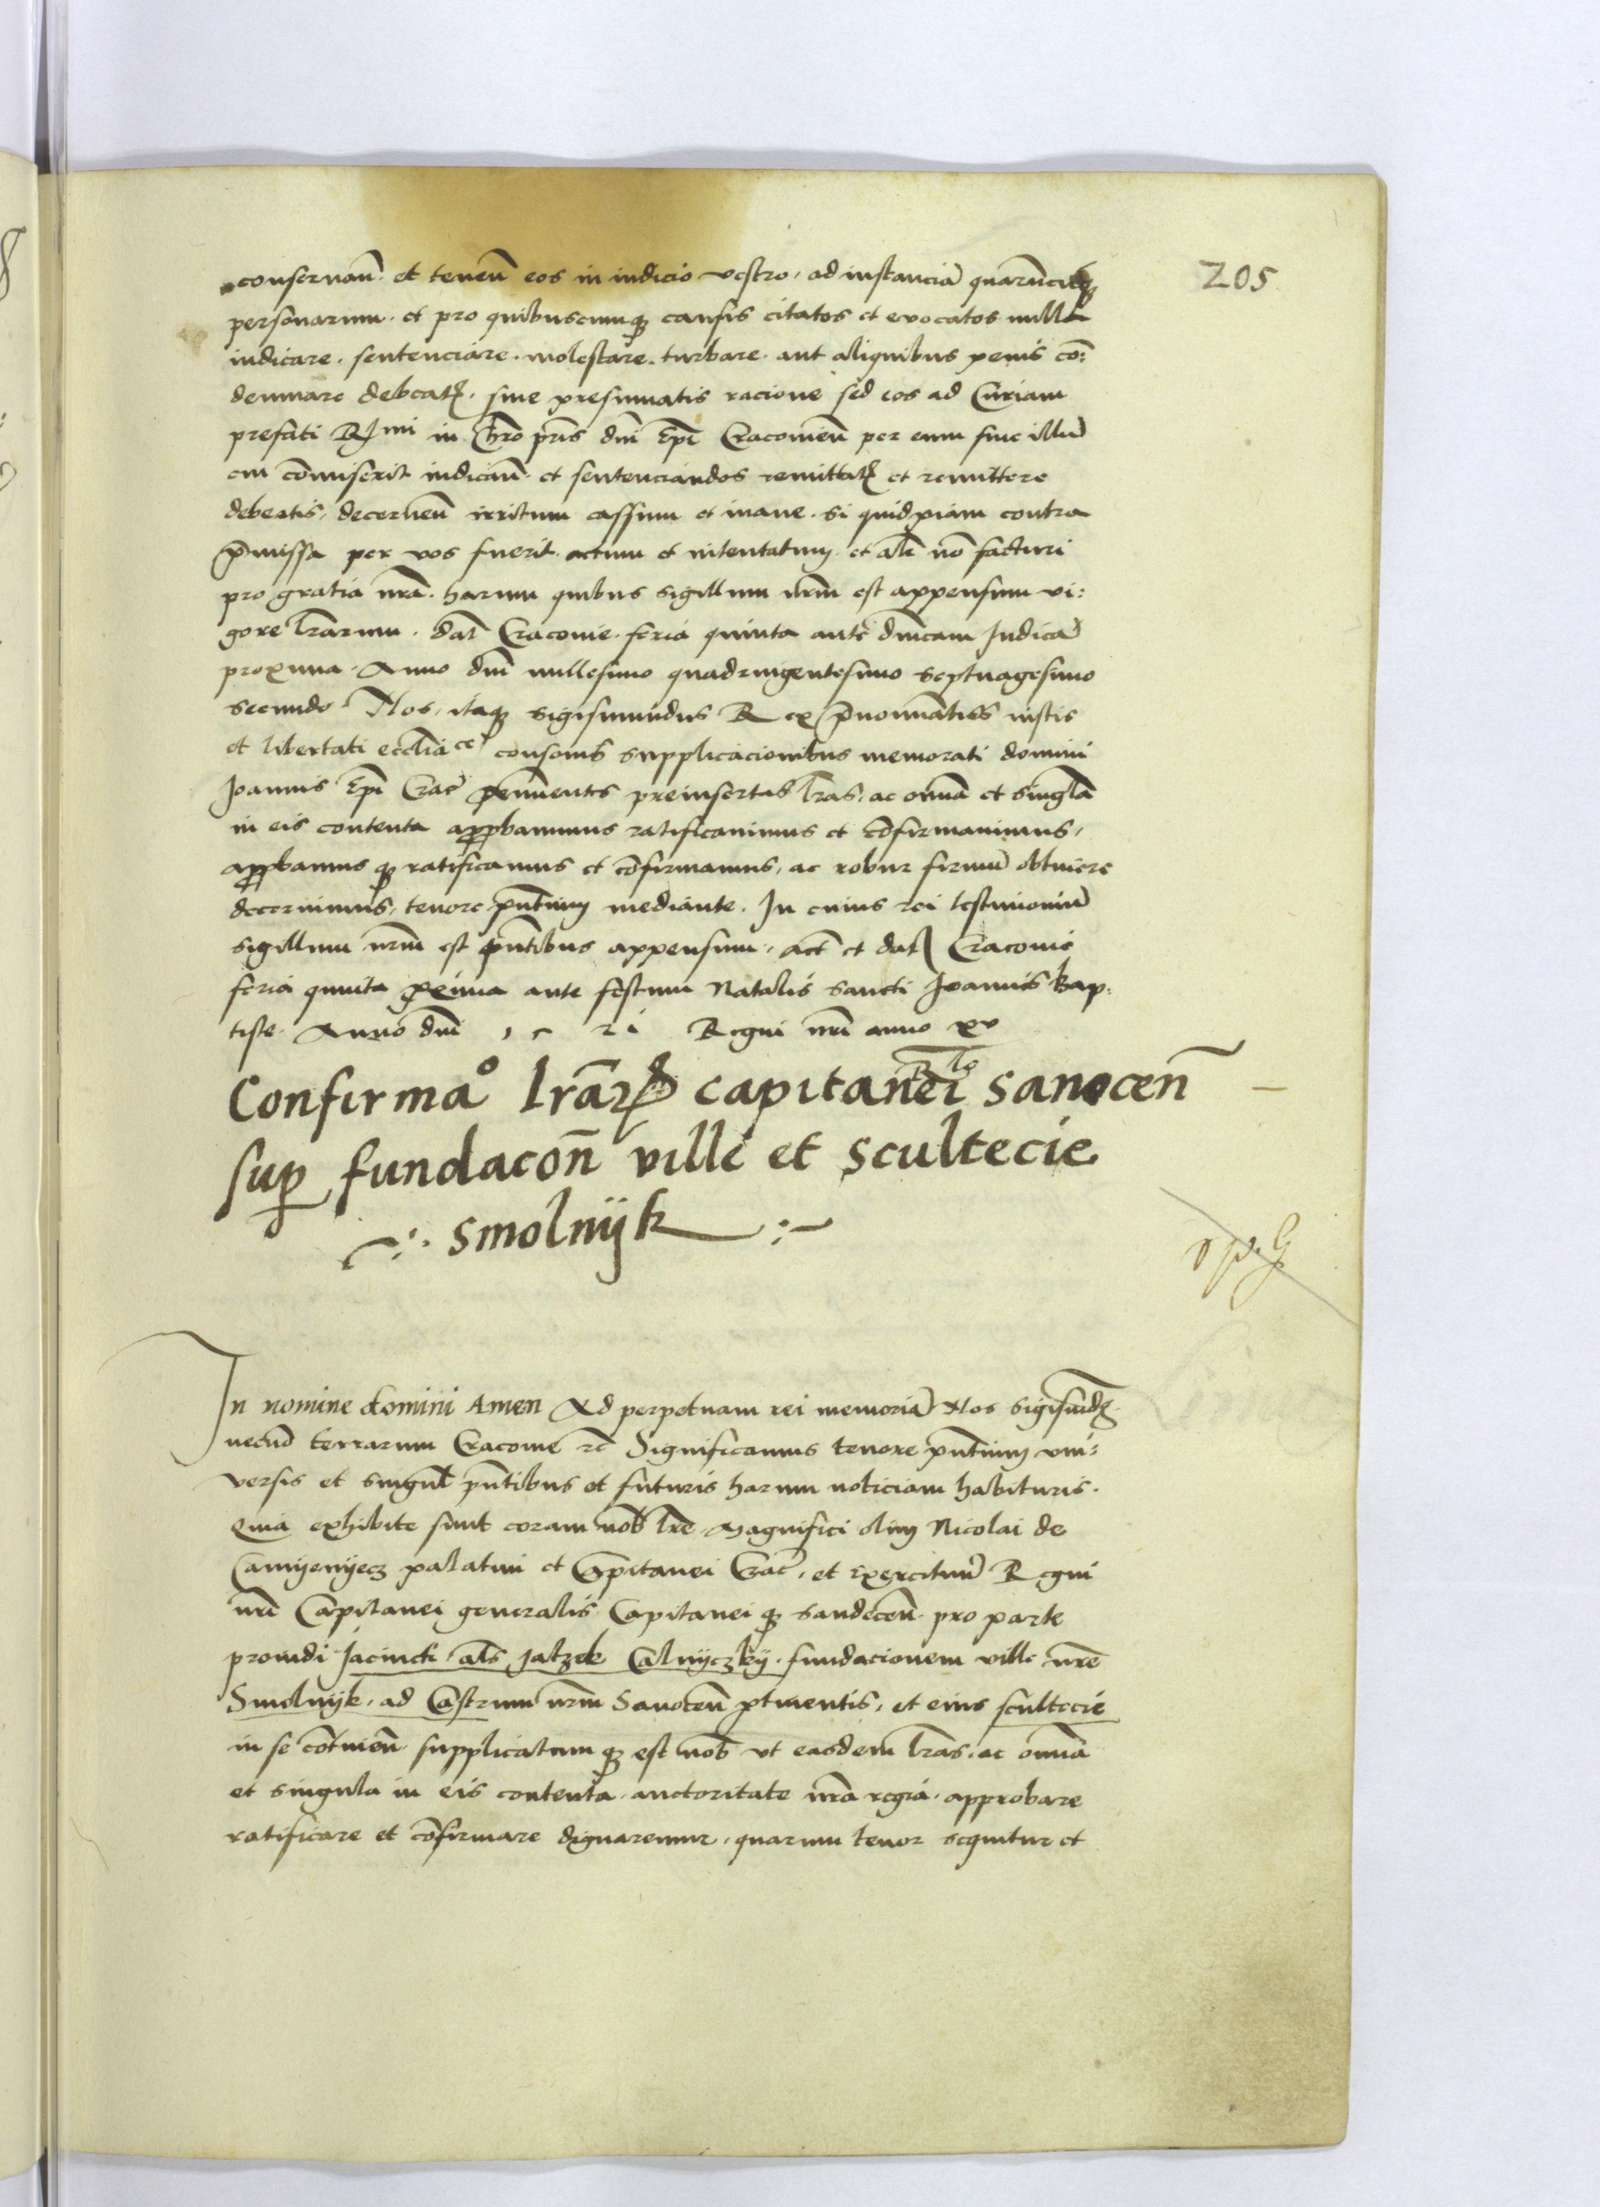 205
conservan̄ et tenen̄ eos in iudicio vestro, ad instanciā quarūcūq3
personarum et pro quibuscumq3 causis citatos et evocatos nulla
iudicare, sentenciare, molestare, turbare, aut aliquibus penis cō:
demnare debeatꝭ, sive presumatis racione sed eos ad Curiam
prefati R̄mi in Chro pr̄is dn̄i Ep̄i Cracovien̄ per eum sive illū
cui cōmiserit iudican̄ et sentenciandos remittatꝭ et remittere
debeatis, decernen̄ irritum cassum et inane, si quidpiam contra
p̄missa per vos fuerit actum et intentatum et ali no facturi
pro gratia nr̄a. harum quibus sigillum nr̄m est appensum vi:
gore lr̄arum. dat̄ Cracovie feria quinta ante dn̄icam Iudica
proxima Anno dn̄i millesimo quadringentesimo septuagesimo
secundo Nos, itaq3 Sigismundus Rex p̄nominatis iustis
et libertati ecclīa ce consonis supplicacionibus memorati domini
Joannis Ep̄i Crac̄ annuentes preinsertas lr̄as, ac omīa et singl̄a
in eis contenta approbavimus ratificavimus et cōfirmavimus,
approbamus q3 ratificamus et cōfirmamus, ac robur firmū obtinere
decernimus, tenore pn̄tium mediante. In cuius rei testimoniū
sigillum nr̄m est pn̄tibus appensum, act̄ et dat̄ Cracovie
feria quinta proxima ante festum Natalis sancti Joannis Bap:
tiste Anno dn̄i 1 5 2 i Regni nr̄i anno xv
Confirma° lr̄aꝝ capitanei sanocen̄
sup fundacōn̄ ville et scultecie
Smolnijk
In nomine domini Amen Ad perpetuam rei memoriā Nos Sigismūdꝭ
necnō terrarum Cracovie rc̄ Significamus tenore pn̄tium uni:
versis et singul̄ pn̄tibus et futuris harum noticiam habituris.
Quia exhibite sunt coram nob̄ lr̄e Magnifici olim Nicolai de
Camyenyecz palatini et Capitanei Crac̄, et Exercituū Regni
nr̄i Capitanei generalis Capitanei q3 sandecen̄ pro parte
providi Jacincti als̄ Jatzek Calnyczky, fundacionem ville nr̄e
Smolnijk, ad Castrum nr̄m Sanocen̄ ptinentis, et eius scultecie
in se cōtinen̄ supplicatum q3 est nob̄ ut easdem lr̄as, ac omīa
et singula in eis contenta auctoritate nr̄a regia approbare
ratificare et cōfirmare dignaremur, quarum tenor sequitur et